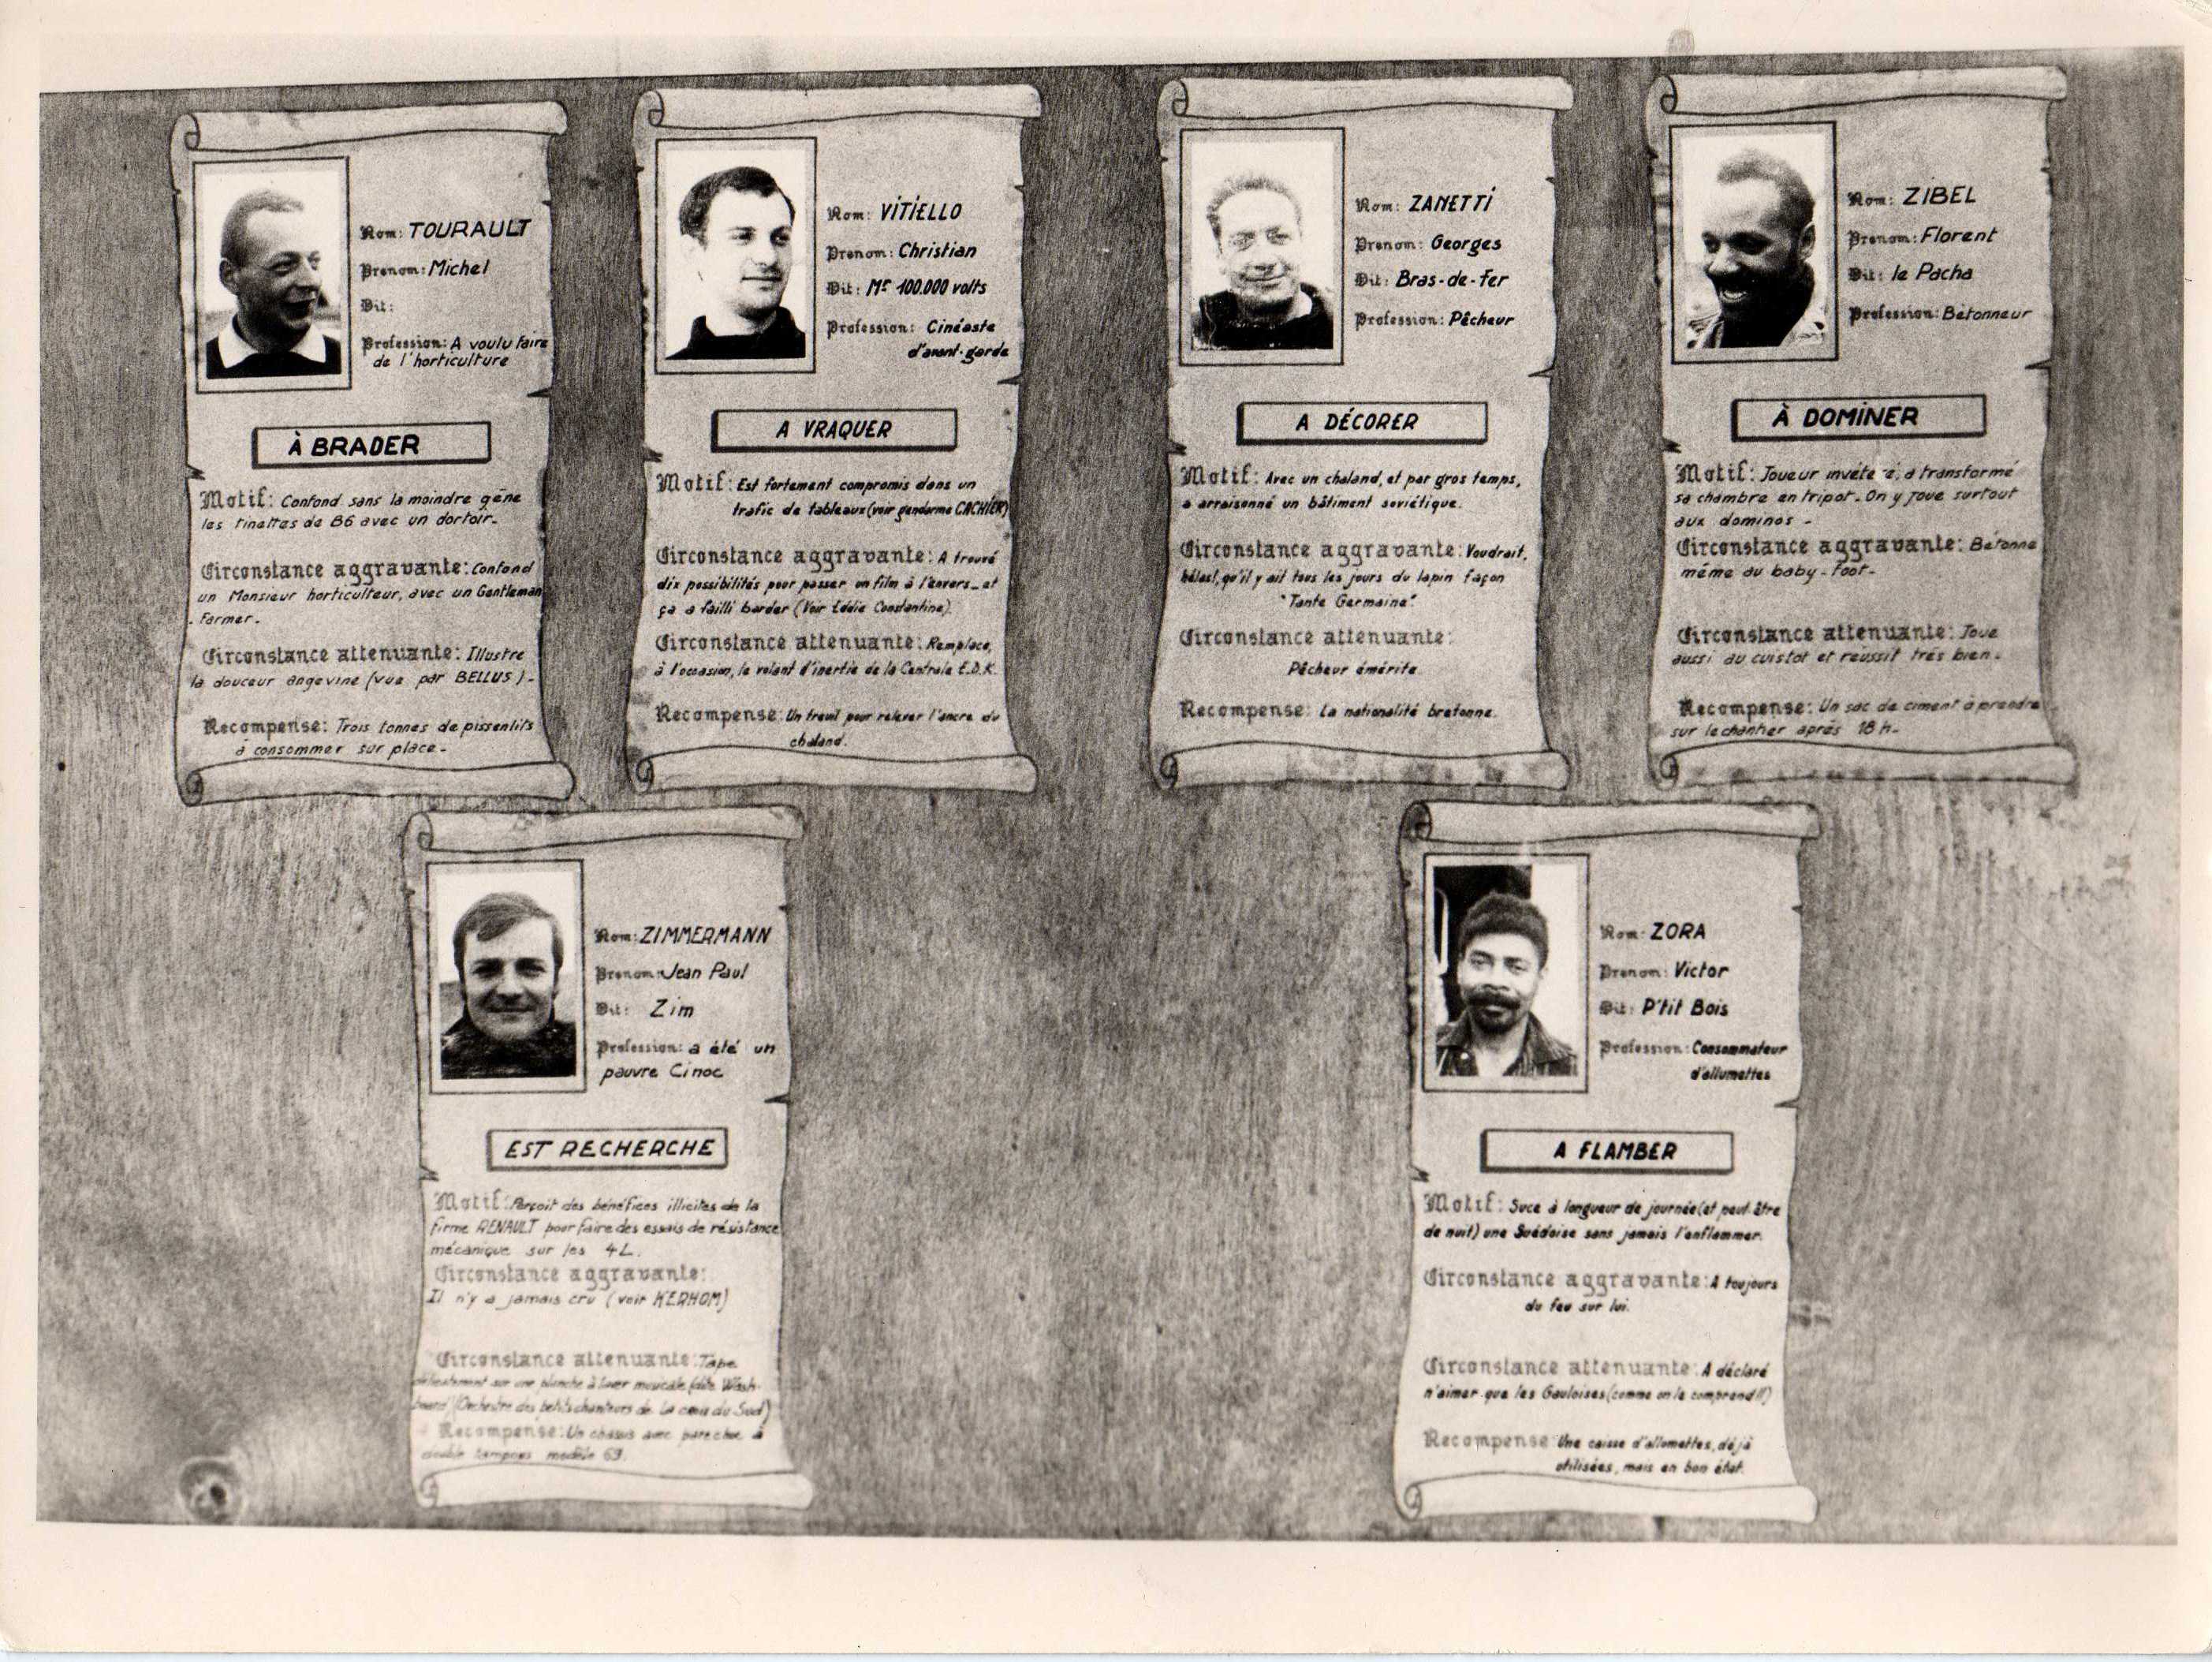 Nom: TOURAULT
Prenom: Michel
Dit:
Profession: A voulu faire
de l'horticulture
À BRADER
Motif: Confond sans la moindre gêne
les tinettes de B6 avec un dortoir-
Circonstance aggravante: Confond
un Monsieur horticulteur, avec un Gentleman
-Farmer-
Circonstance attenuante: Illustre
la douceur angevine (vue par BELLUS)-
Recompense: Trois tonnes de pissenlits
à consommer sur place-
Nom: VITIELLO
Prenom: Christian
Dit: Mr 100.000 volts
Profession: Cinéaste
d'avant-garde
A VRAQUER
Motif: Est fortement compromis dans un
trafic de tableaux (voir gendarme CACHIER)
Circonstance aggravante: A trouvé
dix possibilités pour passer un film à l'envers_et
ça a failli barder (Voir Eddie Constantine).
Circonstance attenuante: Remplace,
à l'occasion, le volant d'inertie de la Centrale E.D.K.
Recompense: Un treuil pour relever l'ancre du
chaland.
Nom: ZANETTI
Prenom: Georges
Dit: Bras-de-Fer
Profession: Pêcheur
A DÉCORER
Motif: Avec un chaland, et par gros temps,
a arraisonné un bâtiment soviétique.
Circonstance aggravante: Voudrait,
hélas!, qu'il y ait tous les jours du lapin façon
"Tante Germaine".
Circonstance attenuante:
Pêcheur émérite.
Recompense: La nationalité bretonne.
Nom: ZIBEL
Prenom: Florent
Dit: le Pacha
Profession: Bétonneur
À DOMINER
Motif: Joueur invété é, a transformé
sa chambre en tripot. On y joue surtout
aux dominos -
Circonstance aggravante: Bétonne
même au baby-foot-
Circonstance attenuante: Joue
aussi au cuistot et réussit très bien-
Recompense: Un sac de ciment à prendre
sur le chantier après 18 h-
Nom: ZIMMERMANN
Prenom: Jean Paul
Dit: Zim
Profession: a été un
pauvre Cinoc
EST RECHERCHE
Motif: Perçoit des bénéfices illicites de la
firme RENAULT pour faire des essais de résistance
mécanique sur les 4L.
Circonstance aggravante:
Il n'y a jamais cru (voir KERHOM)
Circonstance attenuante: Tape
sur une planche à laver musicale dite Wash-
board (Orchestre des petits chanteurs de la croix du Sud)
Recompense: Un chassis avec parechoc à
double tampons modèle 69.
Nom: ZORA
Prenom: Victor
Dit: P'tit Bois
Profession: Consommateur
d'allumettes
A FLAMBER
Motif: Suce à longueur de journée (et peut-être
de nuit) une Suédoise sans jamais l'enflammer.
Circonstance aggravante: A toujours
du feu sur lui.
Circonstance attenuante: A déclaré
n'aimer que les Gauloises (comme on le comprend!!)
Recompense: Une caisse d'allumettes, déjà
utilisées, mais en bon état.